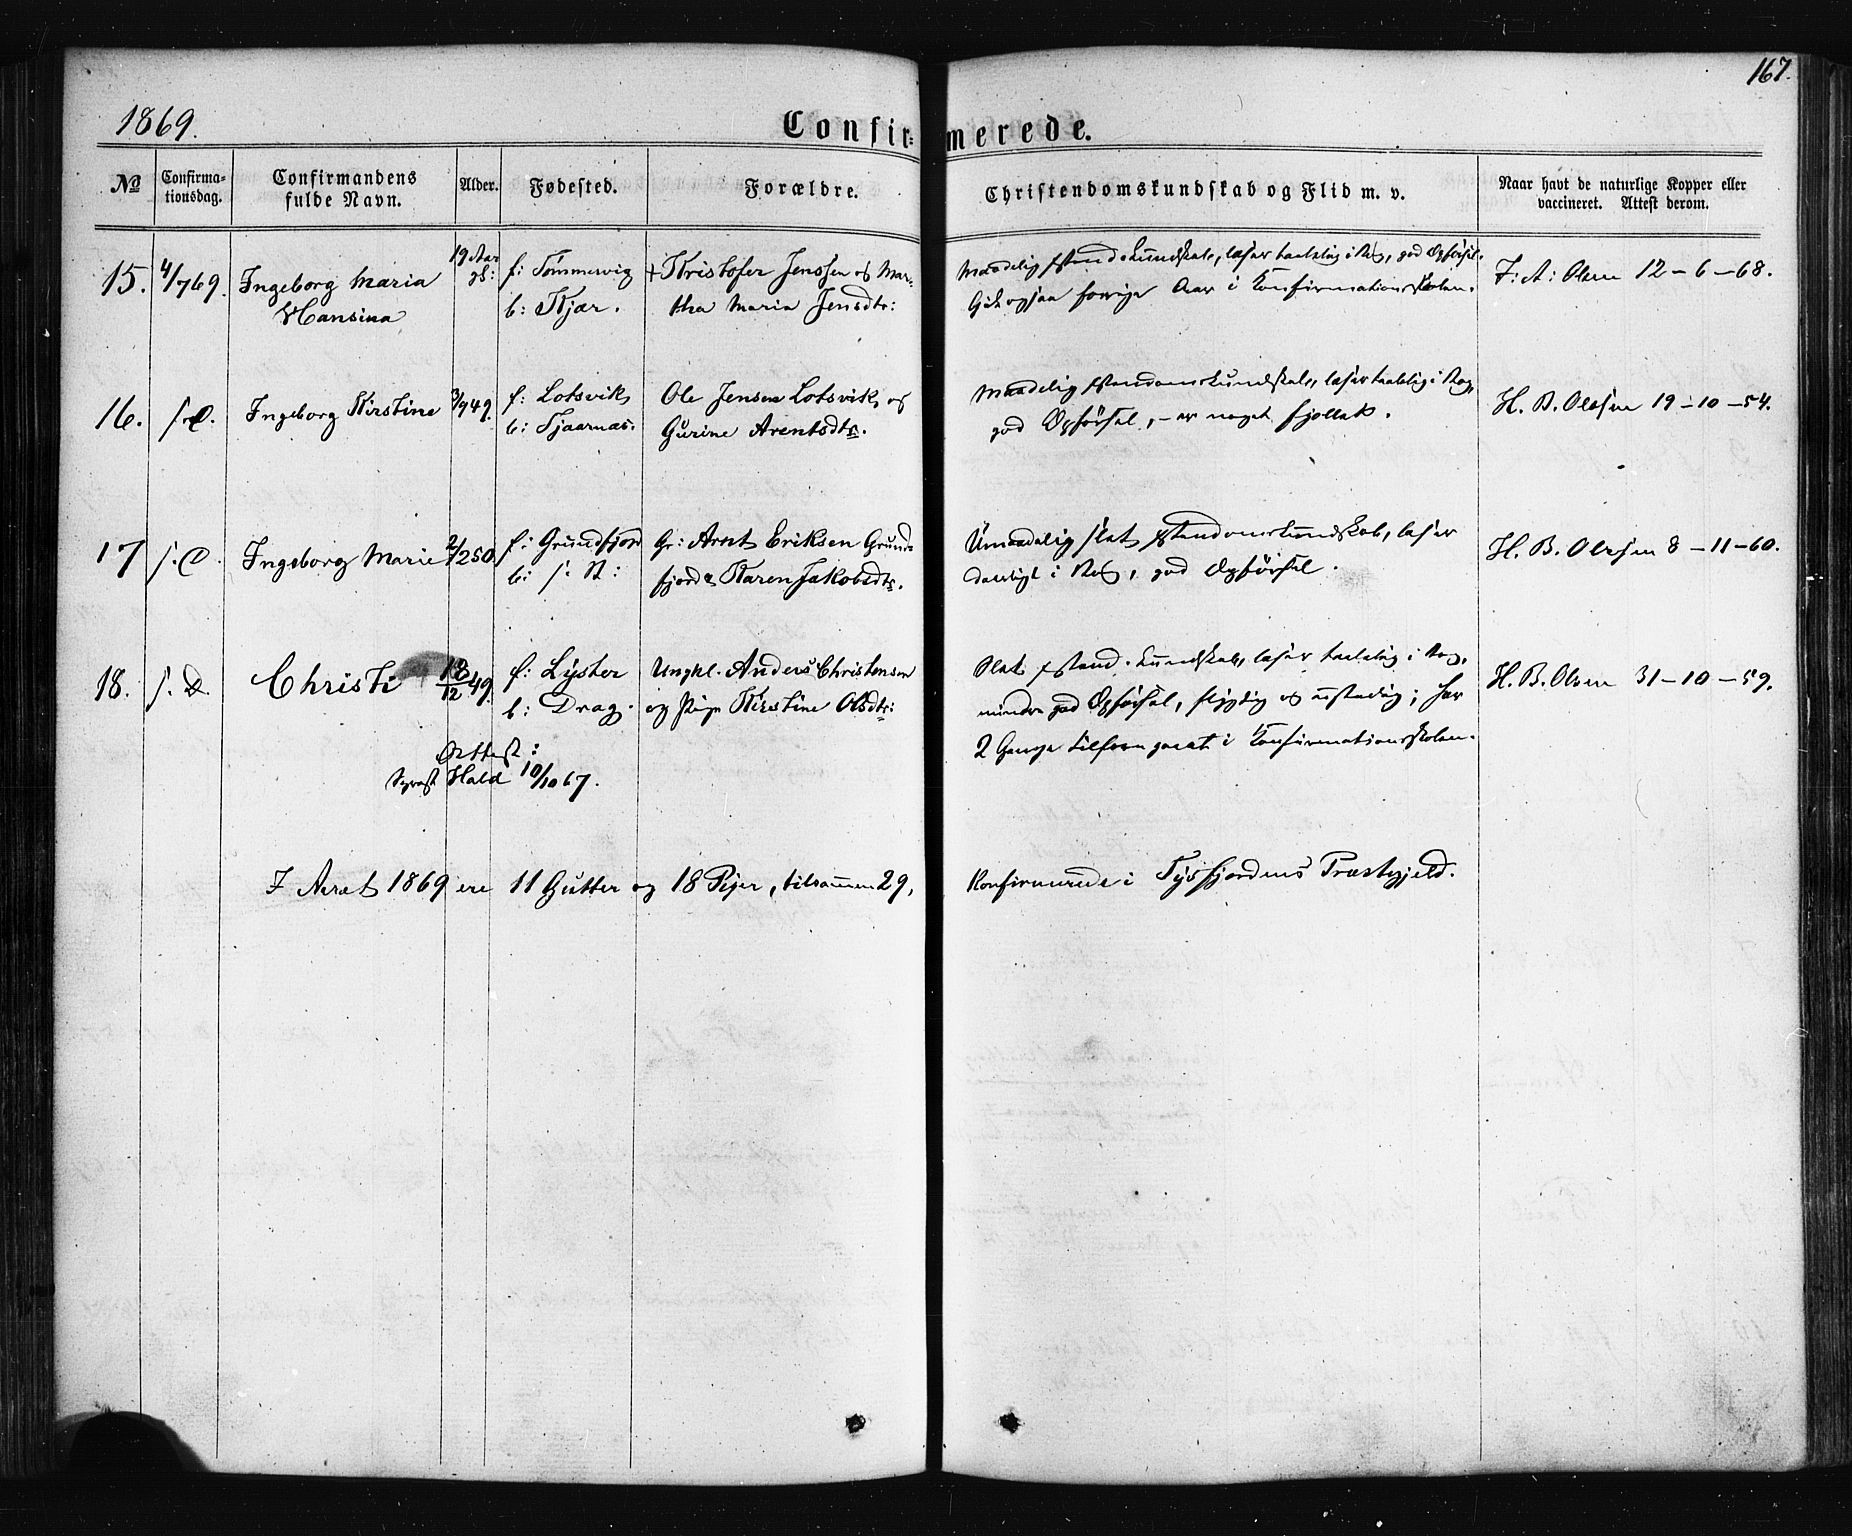 167.
1869.
Confir-
merede.
No
Confirma-
tionsdag.
Confirmandens
fulde Navn.
Alder.
Fødested.
Forældre.
Christendomskundskab og Flid m. v.
Naar havt de naturlige Kopper eller
vaccineret. Attest derom.
15.
4/7 69.
Ingeborg Maria
Hansina
19 Aar
gl:
f: Tømmervig
b: Kjær.
+ Kristofer Jenssen og Mar-
tha Maria Jensdtr:
Maadelig Kstend.kundskab, læser taalelig i Bog, god Opførsel.
Gik ogsaa forrige Aar i Konfirmationsskolen.
F: A: Olsen 12-6-68.
16.
s. D.
Ingeborg Kirstine
3/9 49.
f: Lotsvik
b: Tjaarnæs.
Ole Jensen Lotsvik og
Gurine Arentsdtr.
Maadelig Kstendomskundskab, læser taalelig i Bog,
god Opførsel, - er noget fjollet.
H. B. Olessen 19-10-54.
17
s. D.
Ingeborg Marie
2/2 50.
f: Grundfjord
b: s. St:
Gr: Arnt Eriksen Grund-
fjord & Karen Jakobsdtr.
Umaadelig slet Kstendomskundskab, læser
daarligt i Bog, god Opførsel.
H. B. Olessen 8-11-60.
18.
s. D.
Christi
18/12 49.
f: Lyster
b: Drag.
Ungkl. Anders Christensen
og Pige Kirstine Olsdtr:
Slet Kstend.kundskab, læser taalelig i Bog,
mindre god Opførsel, flygtig og ustadig; har
2 Gange tilforn gaaet i Konfirmationsskolen.
H. B. Olsen 31-10-59.
Attest:
Hald 10/10 67.
I Aaret 1869 ere 11 Gutter og 18 Piger, tilsammen 29,
Konfirmerede i Tysfjordens Præstegjeld.